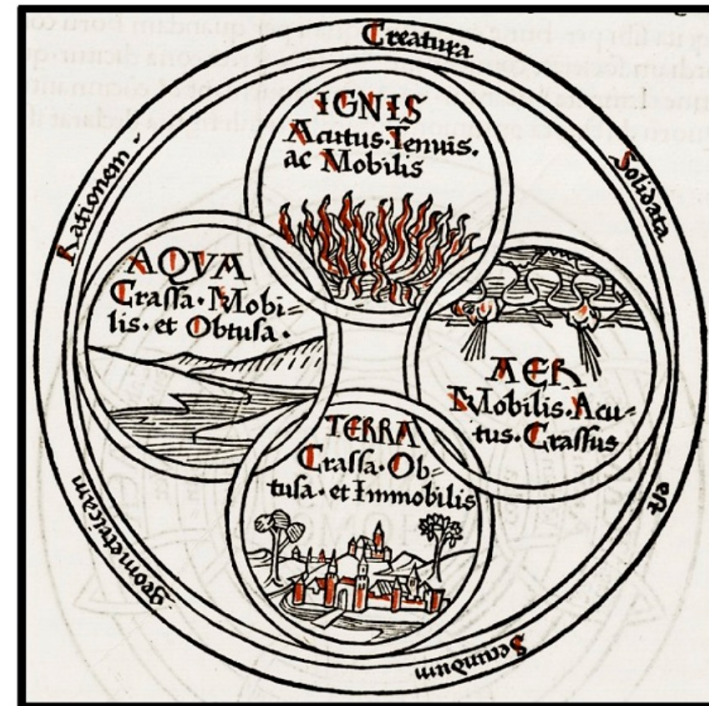 Creatura
Solidata
est
Secundum
geometricam
Rationem
IGNIS
Acutus. Tenuis.
ac Mobilis
AQVA
Crassa. Mobi=
lis. et Obtusa.
AER
Mobilis. Acu=
tus. Crassus
TERRA
Crassa. Ob=
tusa. et Immobilis